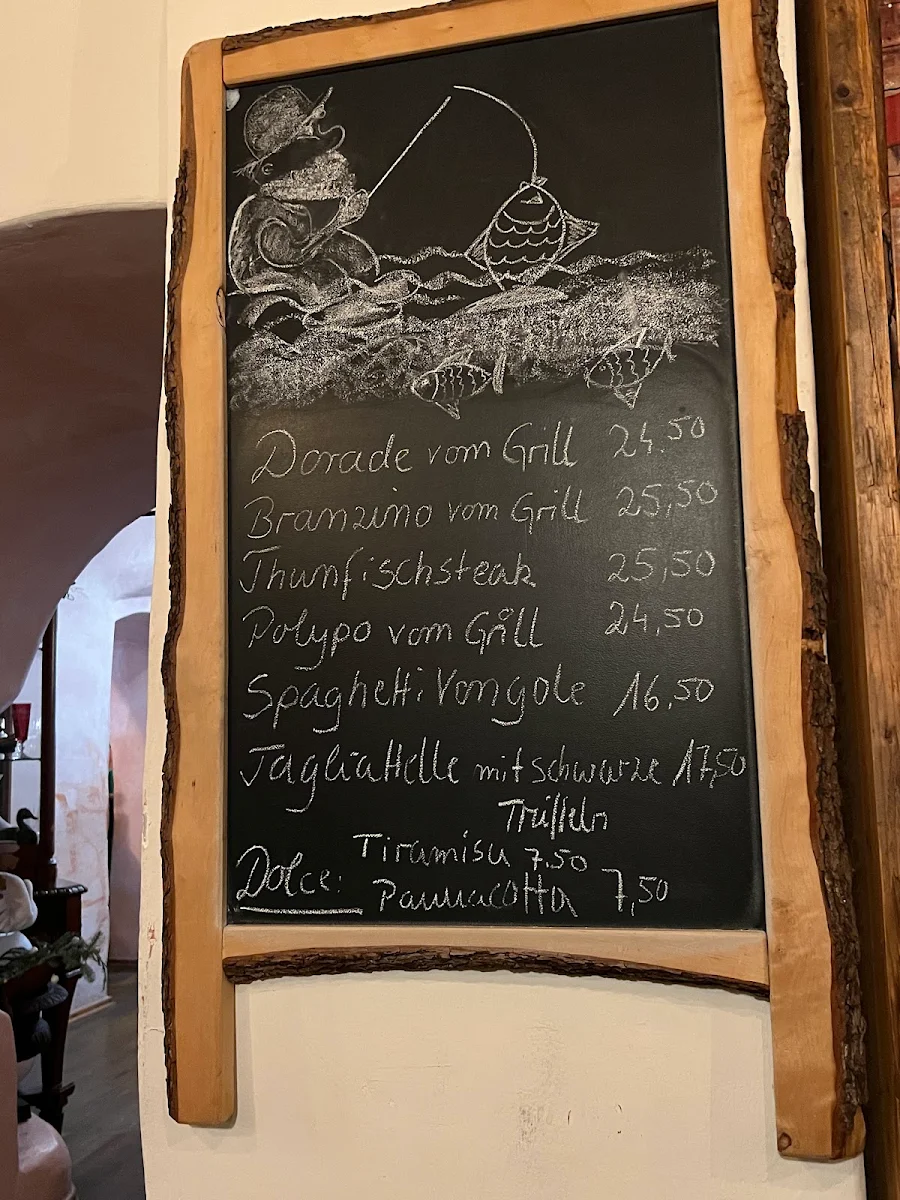 Dorade vom Grill 24.50
Branzino vom Grill 25,50
Thunfischsteak 25,50
Polypo vom Grill 24,50
Spaghetti Vongole 16,50
Tagliattelle mit schwarze 17,50
Trüffeln
Tiramisu 7.50
Dolce:
Pannacotta 7,50